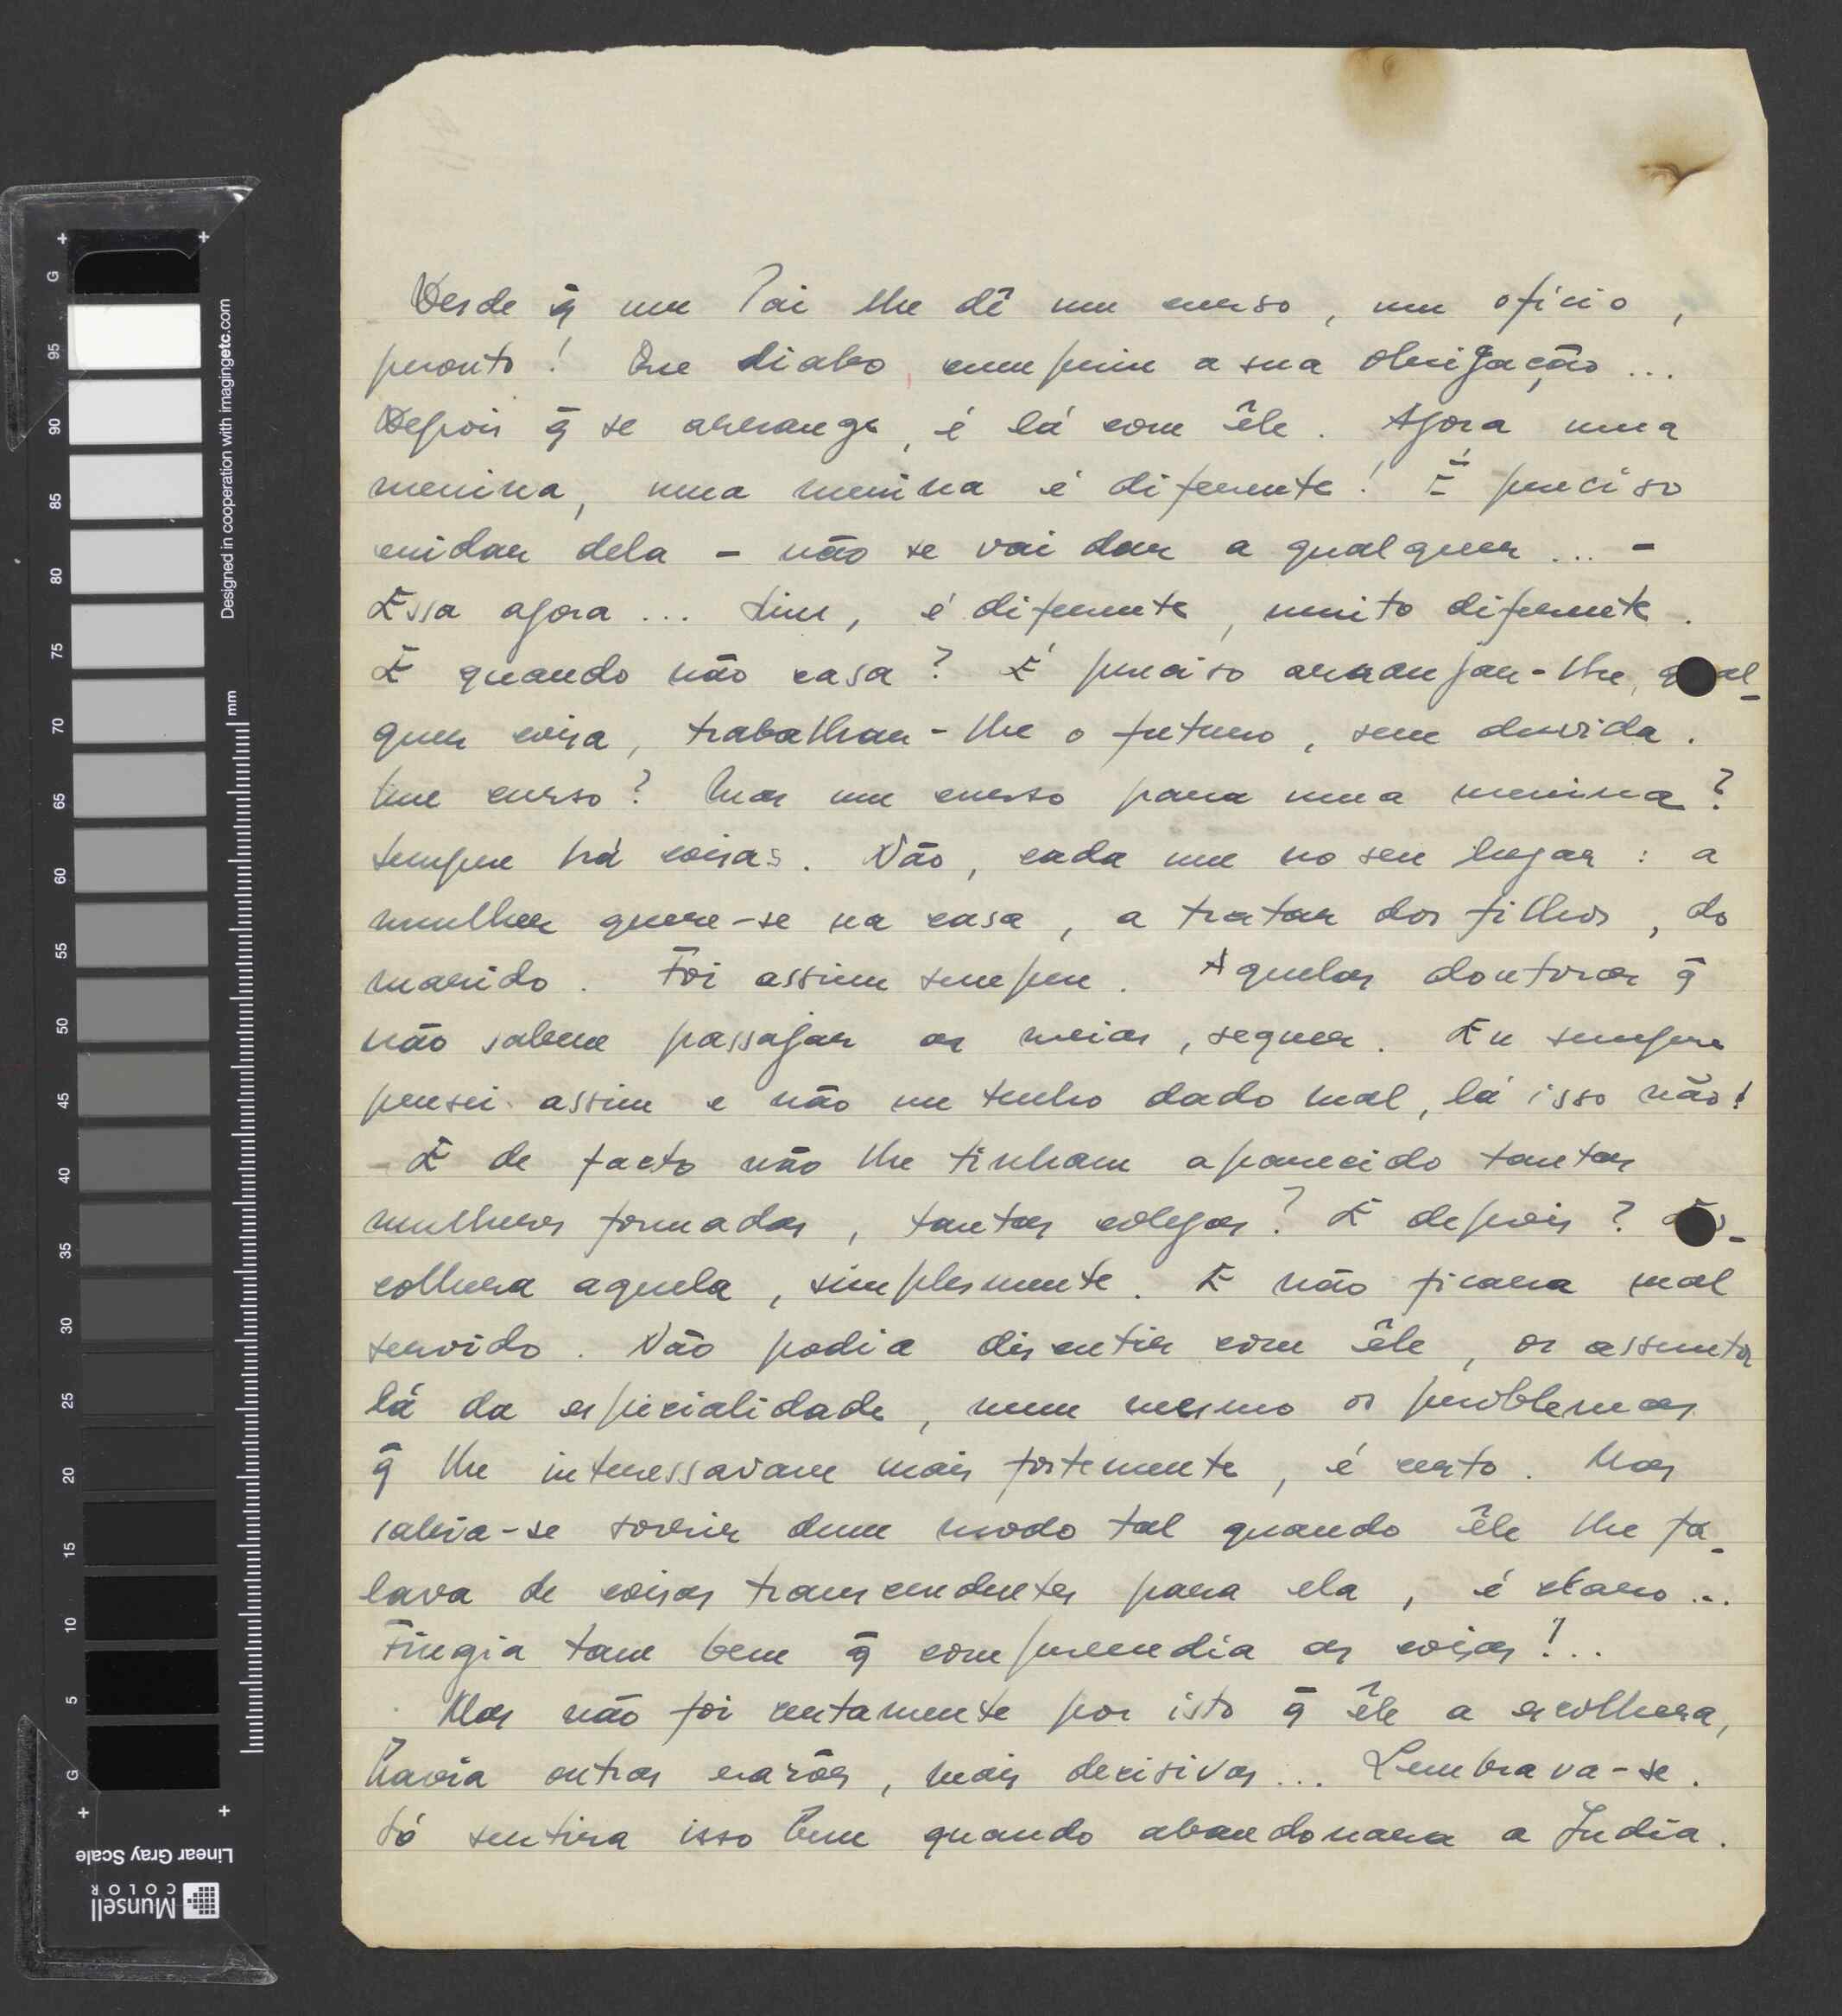 Desde q̃ um Pai lhe dê um curso, um ofício,
pronto! Que diabo, cumpriu a sua obrigação...
Depois q̃ se arrange, é lá com êle. Agora uma
menina, uma menina é diferente! É preciso
cuidar dela - não se vai dar a qualquer... -
Essa agora... Sim, é diferente, muito diferente.
E quando não casa? É preciso arranjar-lhe, qual-
quer coisa, trabalhar-lhe o futuro, sem duvida.
Um curso? Mas um curso para uma menina?
Sempre há coisas. Não, cada um no seu lugar: a
mulher quere-se na casa, a tratar dos filhos, do
marido. Foi assim sempre. Aquelas doutoras q̃
não sabem passajar as meias, sequer. Eu sempre
pensei assim e não me tenho dado mal, lá isso não!
- E de facto não lhe tinham aparecido tantas
mulheres formadas, tantas colegas? E depois? Es-
colhera aquela, simplesmente. E não ficara mal
servido. Não podia discutir com êle, os assuntos
lá da especialidade, nem mesmo os problemas
q̃ lhe interessavam mais fortemente, é certo. Mas
sabia-se sorrir dum modo tal quando êle lhe fa-
lava de coisas transcendentes para ela, é claro...
Fingia tam bem q̃ compreendia as coisas!..
Mas não foi certamente por isto q̃ êle a escolhera,
havia outras razões, mais decisivas... Lembrava-se.
Só sentira isso bem quando abandonara a India.
Designed in cooperation with imagingetc.com
mm
G
95
90
85
80
75
70
65
60
55
50
45
40
35
30
25
20
15
10
5
G
Linear Gray Scale
Munsell
COLOR